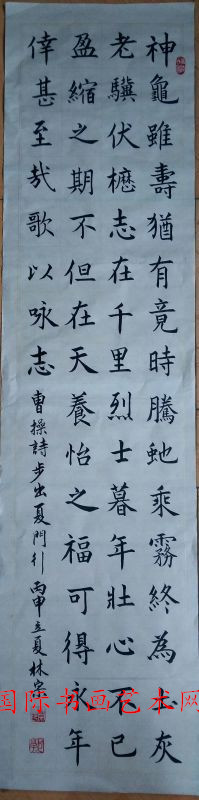 神龜雖壽猶有竟時騰虵乘霧終為土灰
老驥伏櫪志在千里烈士暮年壯心不已
盈縮之期不但在天養怡之福可得永年
倖甚至哉歌以咏志
曹操詩步出夏門行丙申立夏林
国际书画艺术网